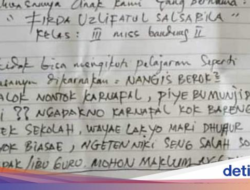 anak kami yang bernama :
FIRDA UZLIFATUL SALSABILA
Kelas : III miss bandung II
bisa mengikuti pelajaran seperti
dikarnakan : NANGIS BEROK2
NONTOK KARNAFAL, PIYE BUMUNJID
?? NGADAKNO KARNAFAL KOK BARENG
SEKOLAH, WAYAE LAK YO MARI DHUHUR
BIASAE, NGETEN NIKI SENG SALAH SO
/IBU GURU, MOHON MAKLUM
deti